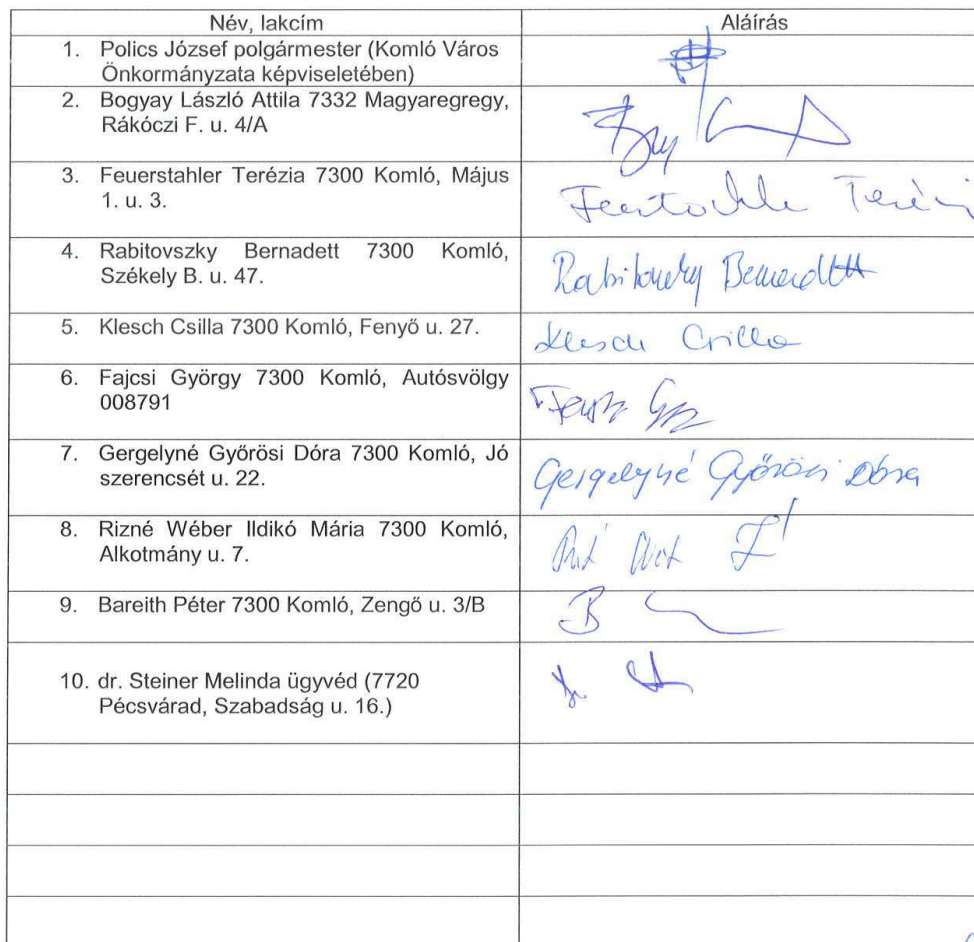 Név, lakcím
Aláírás
1. Polics József polgármester (Komló Város
Önkormányzata képviseletében)
2. Bogyay László Attila 7332 Magyaregregy,
Rákóczi F. u. 4/A
3. Feuerstahler Terézia 7300 Komló, Május
1. u. 3.
4. Rabitovszky Bernadett 7300 Komló,
Székely B. u. 47.
Rabitovszky Bernadett
5. Klesch Csilla 7300 Komló, Fenyő u. 27.
Klesch Csilla
6. Fajcsi György 7300 Komló, Autósvölgy
008791
7. Gergelyné Győrösi Dóra 7300 Komló, Jó
szerencsét u. 22.
Gergelyné Győrösi Dóra
8. Rizné Wéber Ildikó Mária 7300 Komló,
Alkotmány u. 7.
9. Bareith Péter 7300 Komló, Zengő u. 3/B
B
10. dr. Steiner Melinda ügyvéd (7720
Pécsvárad, Szabadság u. 16.)